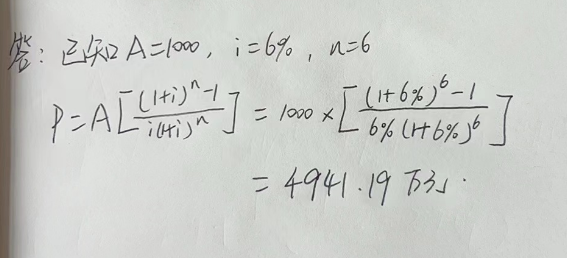 答：已知 A=1000, i=6%, n=6
P=A[((1+i)^n-1)/(i(1+i)^n)] = 1000×[((1+6%)^6-1)/(6%(1+6%)^6)]
= 4941.19 万